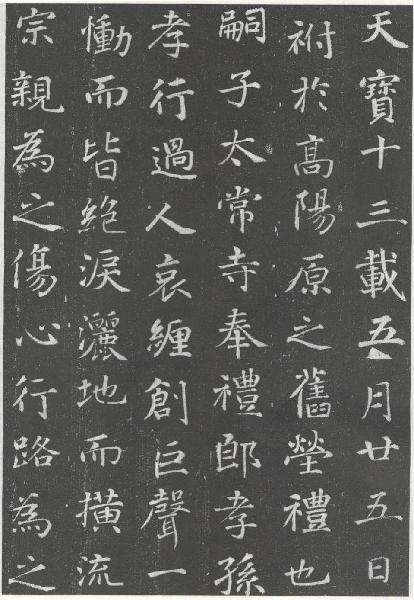 天寶十三載五月廿五日
祔於高陽原之舊塋禮也
嗣子太常寺奉禮郎孝孫
孝行過人哀纏創巨聲一
慟而皆絕淚灑地而橫流
宗親為之傷心行路為之